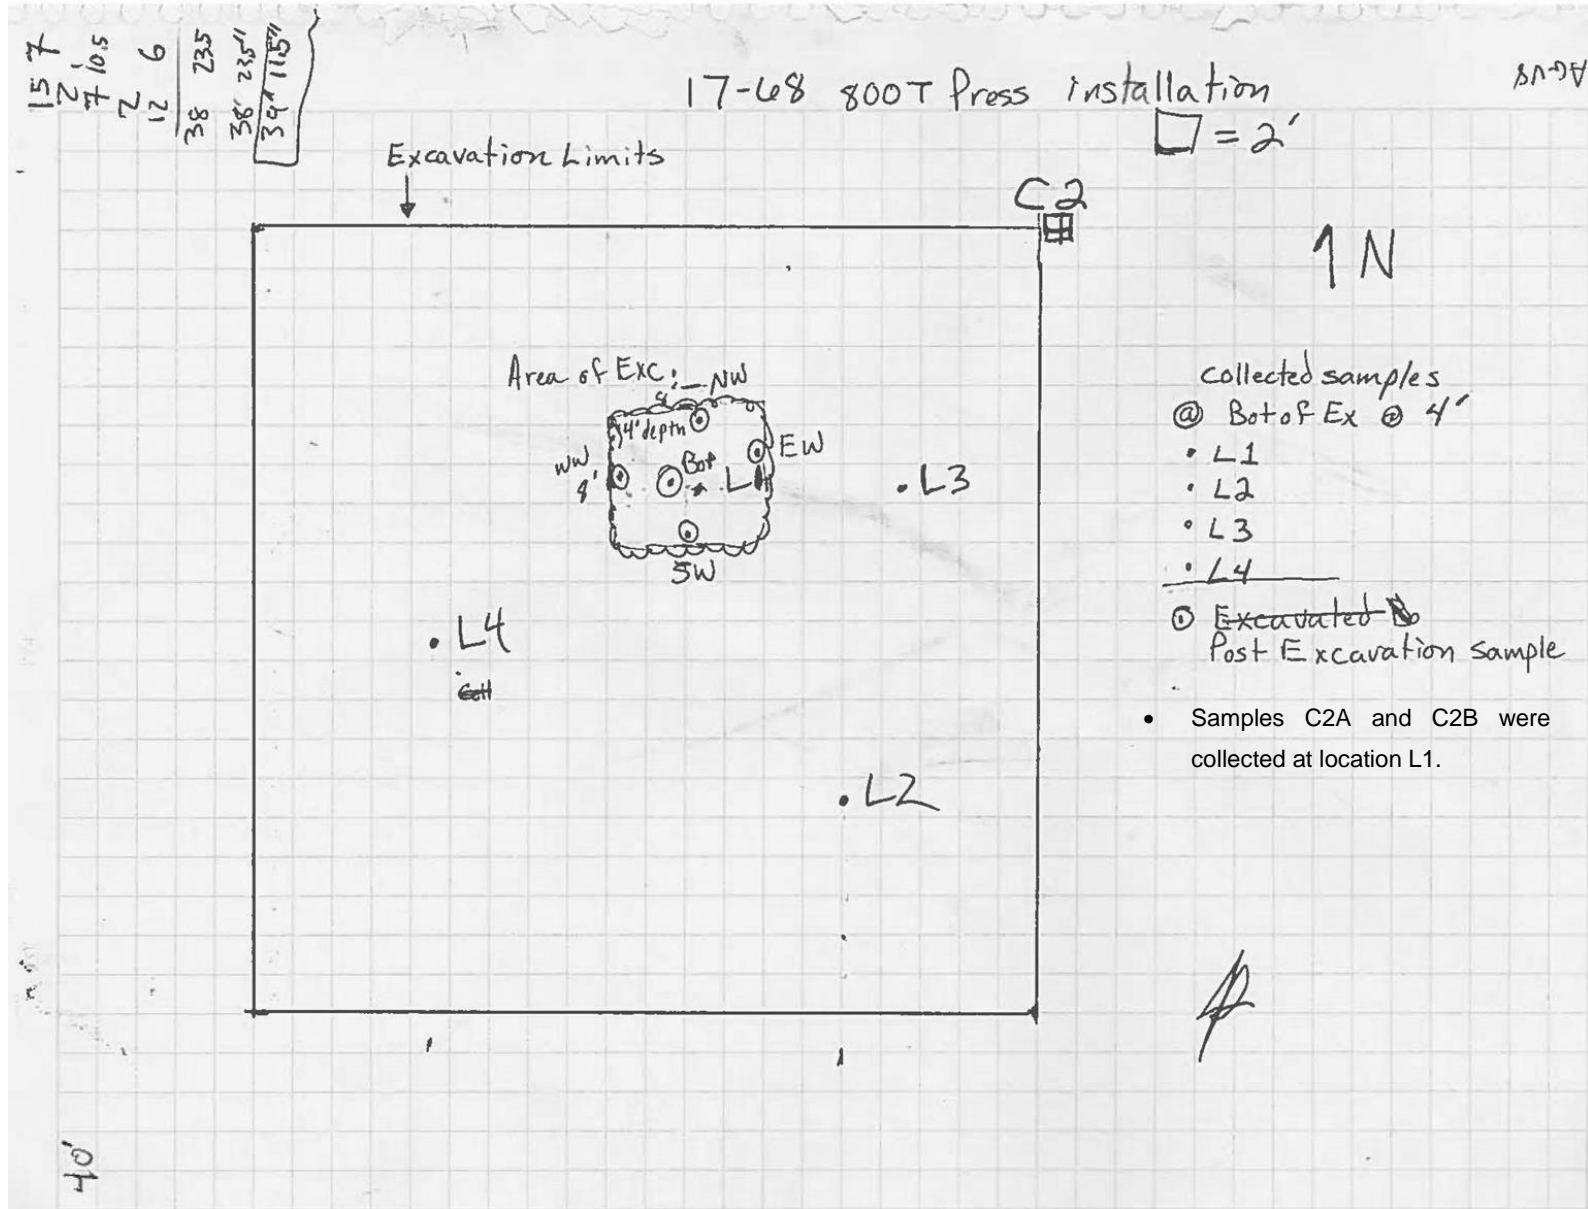 15 7
2'
7 10.5
2
12 6
38 23.5
38' 23.5"
39' 11.5"
17-68 800T Press installation
☐ = 2'
Excavation Limits
C2
1 N
Area of Exc:
8' NW
4' depth
EW
WW
8'
Bot
L1
SW
L3
L4
L2
collected samples
@ Bot of Ex @ 4'
• L1
• L2
• L3
• L4
⊙ Excavated
Post Excavation sample
• Samples C2A and C2B were
collected at location L1.
40'